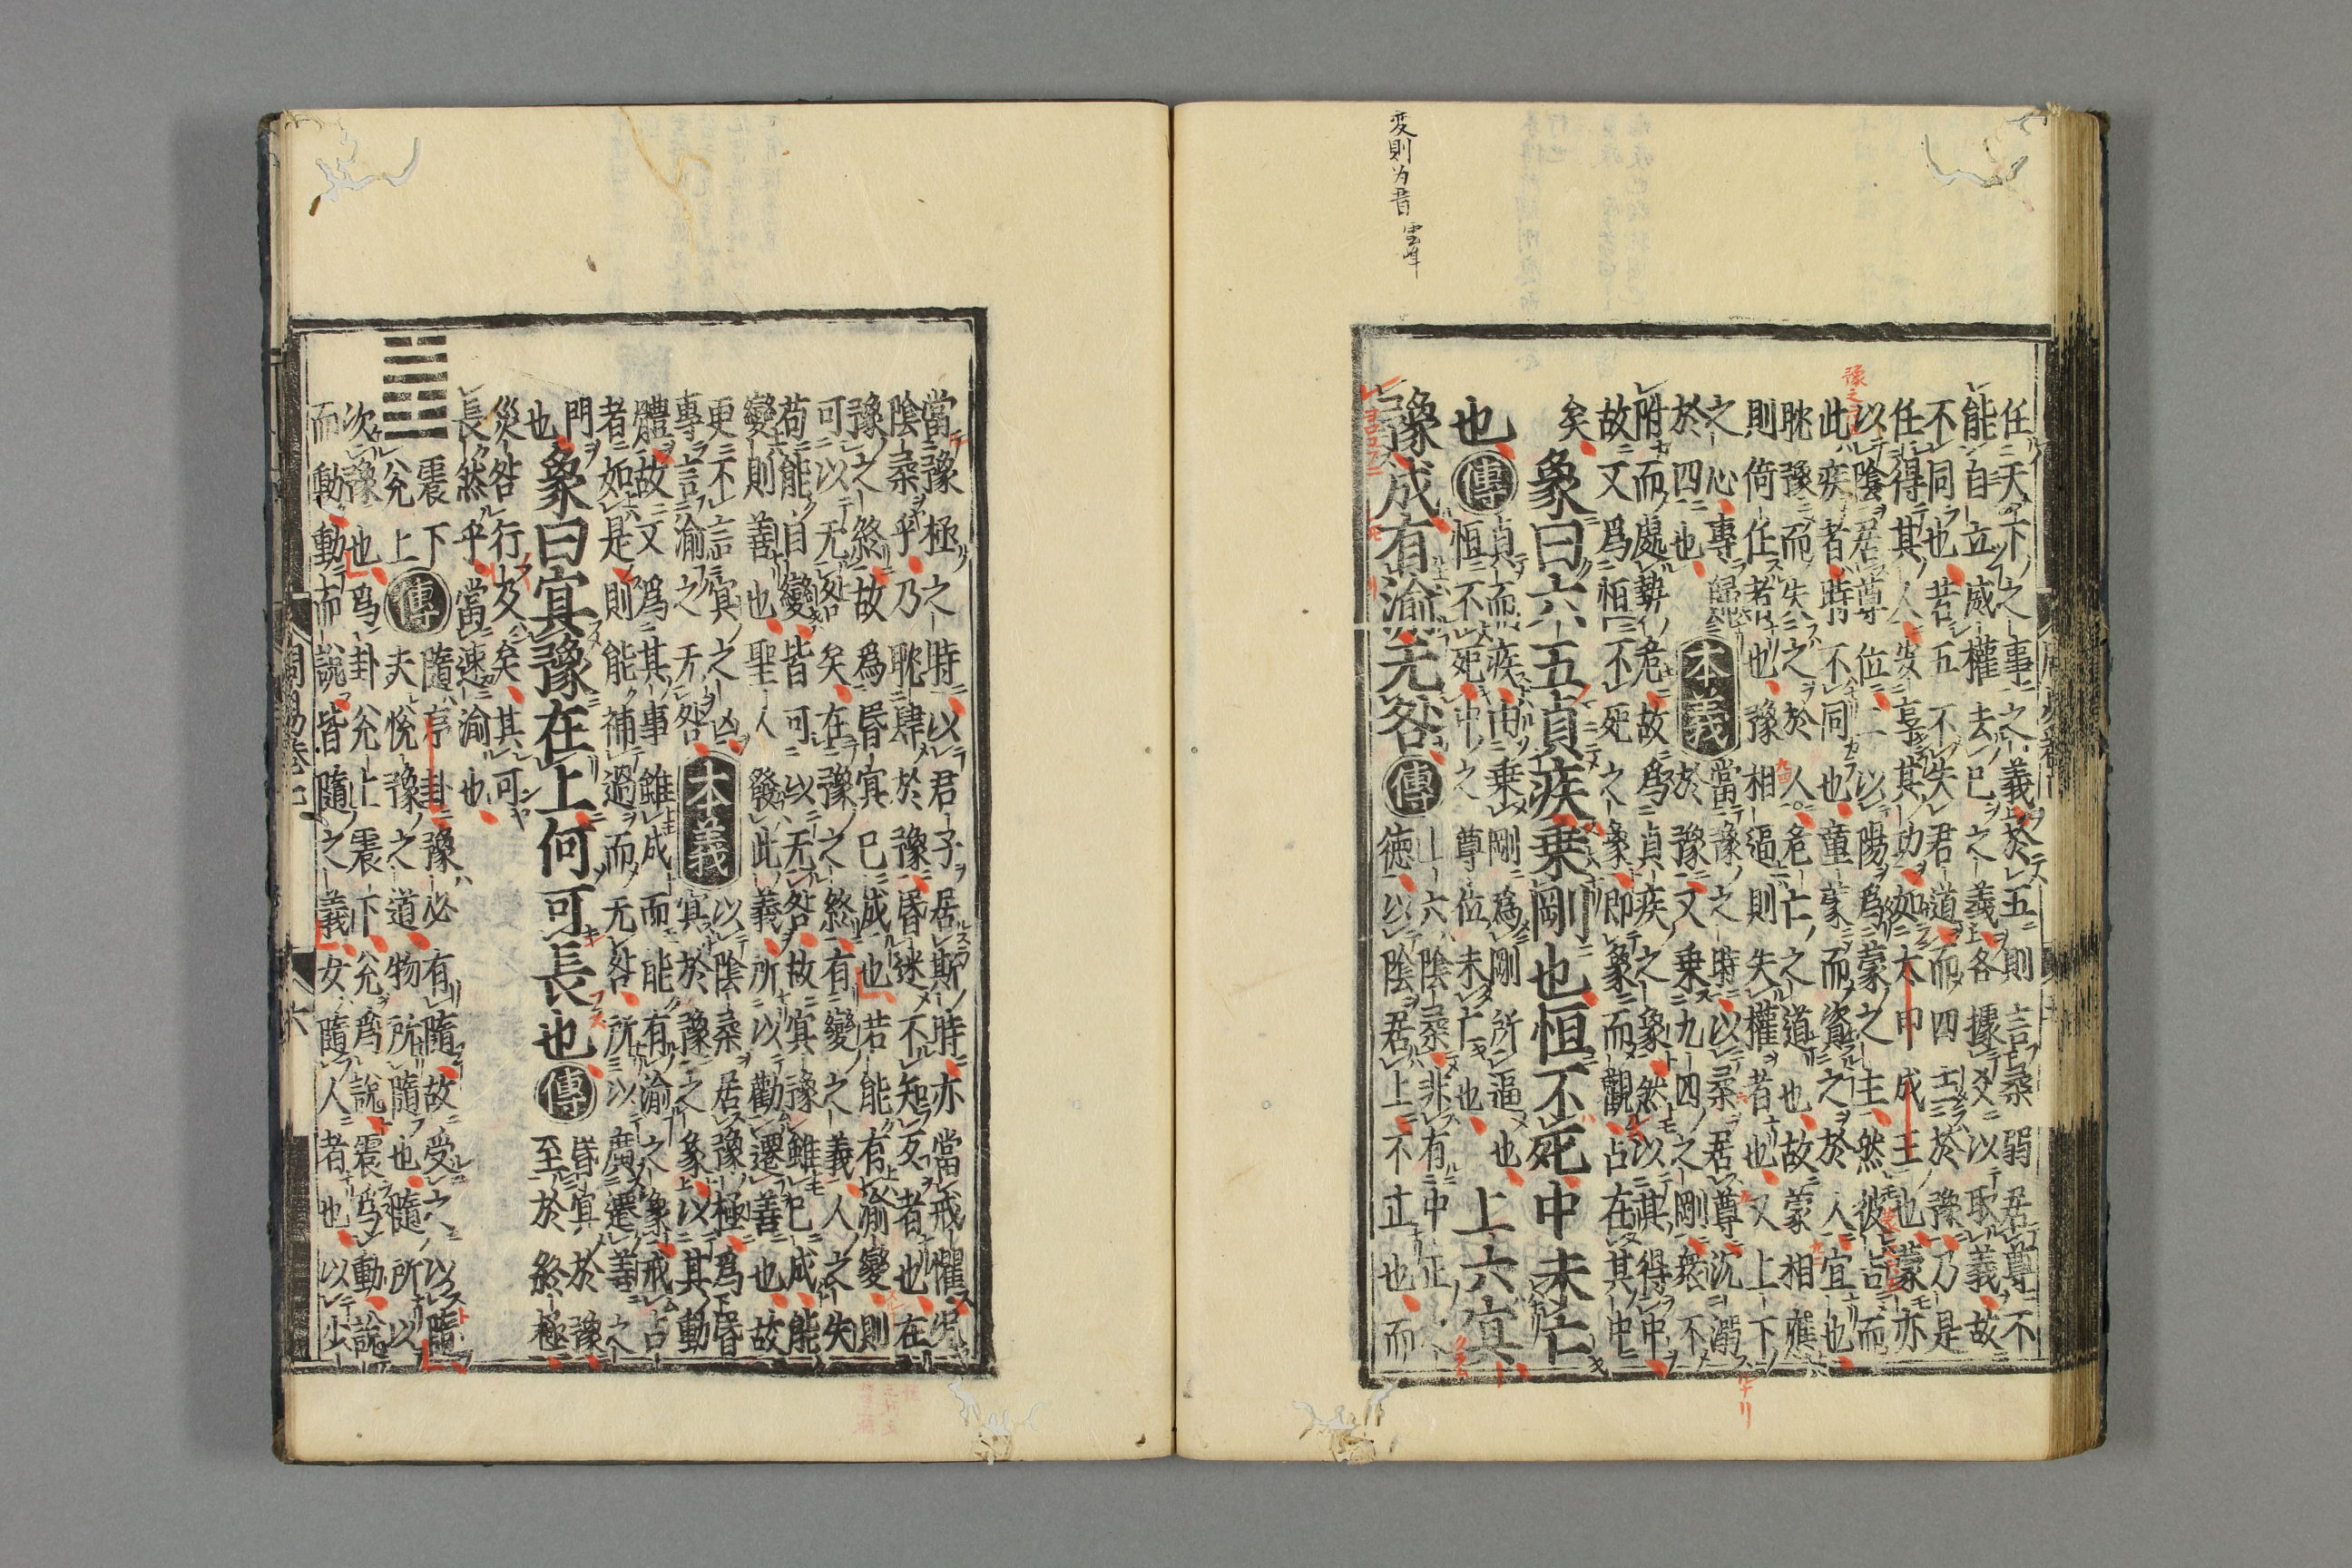 変則为晋 雲峰
任天下之事之義於五則言柔弱居尊不
能自立威權去已之義各據爻以取義故
不同也若五不失君道而四主於豫乃是
任得其人安享其功如太甲成王也蒙亦
以陰居尊位二以陽爲蒙之主然彼吉而
此疾者時不同也童蒙而資之於人宜也
耽豫而失之於人危亡之道也故蒙相應
則倚任者也豫相逼則失權者也又上下
之心專歸於四也
本義
當豫之時以柔居尊沉溺
於豫又乗九四之剛衆不
附而處勢危故爲貞疾之象然以其得中
故又爲恒不死之象即象而觀占在其中
矣
象曰六五貞疾乗剛也恒不死中未亡
也
傳
貞而疾由乗剛爲剛所逼也
恒不死中之尊位未亡也
上六冥
豫成有渝无咎
傳
上六陰柔非有中正
德以陰居上不正也而
當豫極之時以君子居斯時亦當戒懼况
陰柔乎乃耽肆於豫昏迷不知反者也在
豫之終故爲昏冥已成也若能有渝變則
可以无咎矣在豫之終有變之義人之失
苟能自變皆可以无咎故冥豫雖已成能
變則善也聖人發此義所以勸遷善也故
更不言冥之凶
專言渝之无咎
本義
以陰柔居豫極爲昏
冥於豫之象以其動
體故又爲其事雖成而能有渝之象戒占
者如是則能補過而无咎所以廣遷善之
門
也
象曰冥豫在上何可長也
傳
昏冥於豫
至於終極
災咎行及矣其可
長然乎當速渝也
震下
兌上
傳
隨序卦豫必有隨故受之以隨
夫悅豫之道物所隨也隨所以
次豫也爲卦兌上震下兌爲說震爲動說
而動動而說皆隨之義女隨人者也以少
周易卷七
六